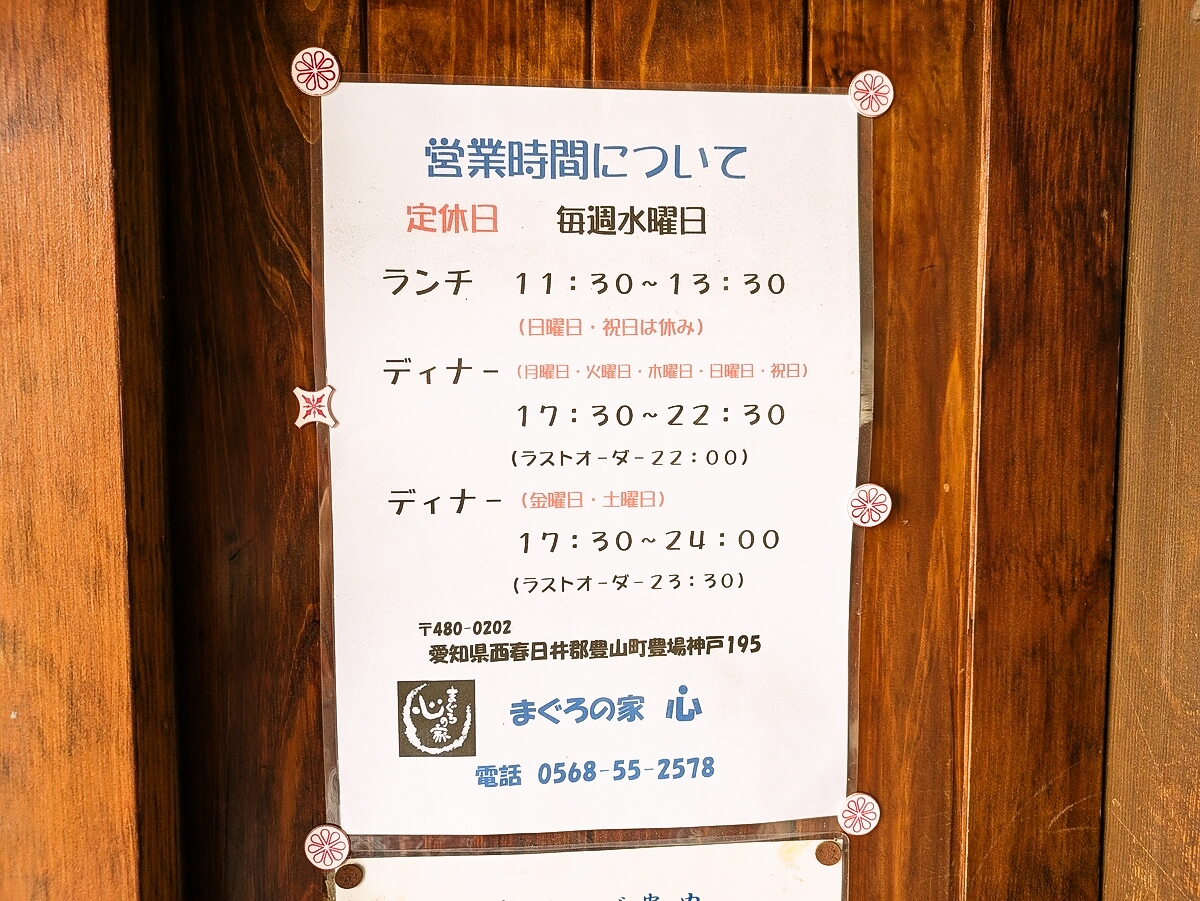 営業時間について
定休日 毎週水曜日
ランチ 11：30～13：30
（日曜日・祝日は休み）
ディナー （月曜日・火曜日・木曜日・日曜日・祝日）
17：30～22：30
（ラストオーダー22：00）
ディナー （金曜日・土曜日）
17：30～24：00
（ラストオーダー23：30）
〒480-0202
愛知県西春日井郡豊山町豊場神戸195
まぐろの家 心
まぐろの家 心
電話 0568-55-2578